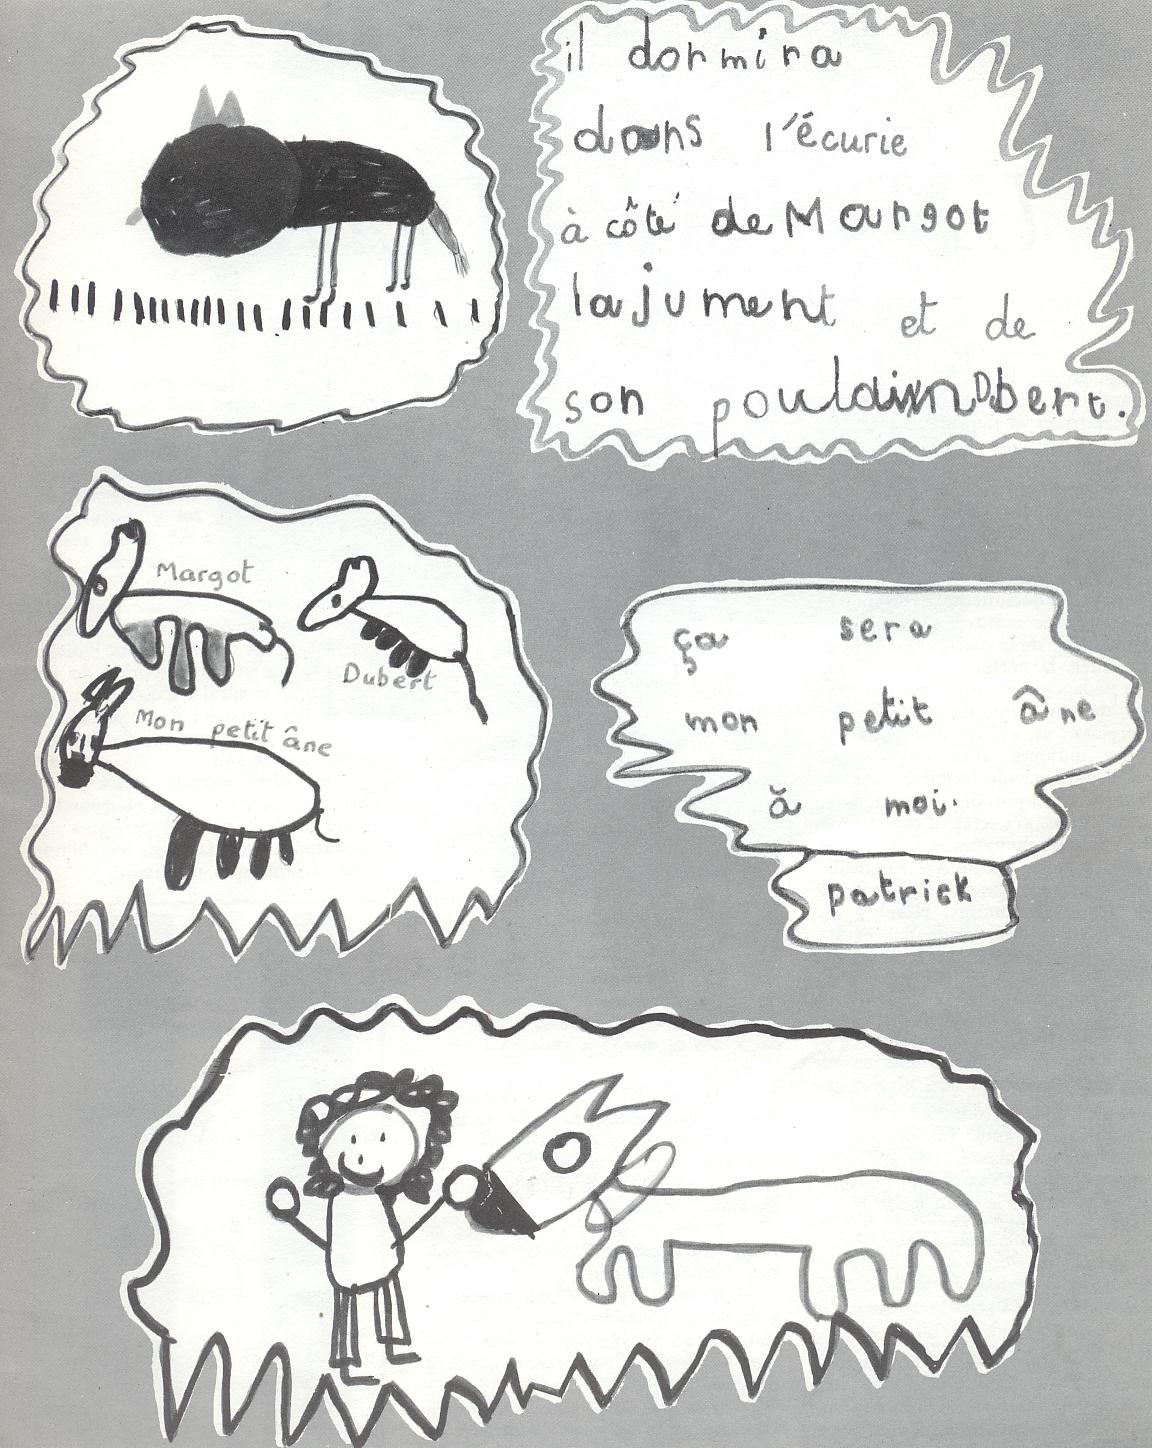 il dormira
dans l'écurie
à côté de Margot
la jument et de
son poulain Dubert.
Margot
Dubert
Mon petit âne
ça sera
mon petit âne
à moi.
patrick